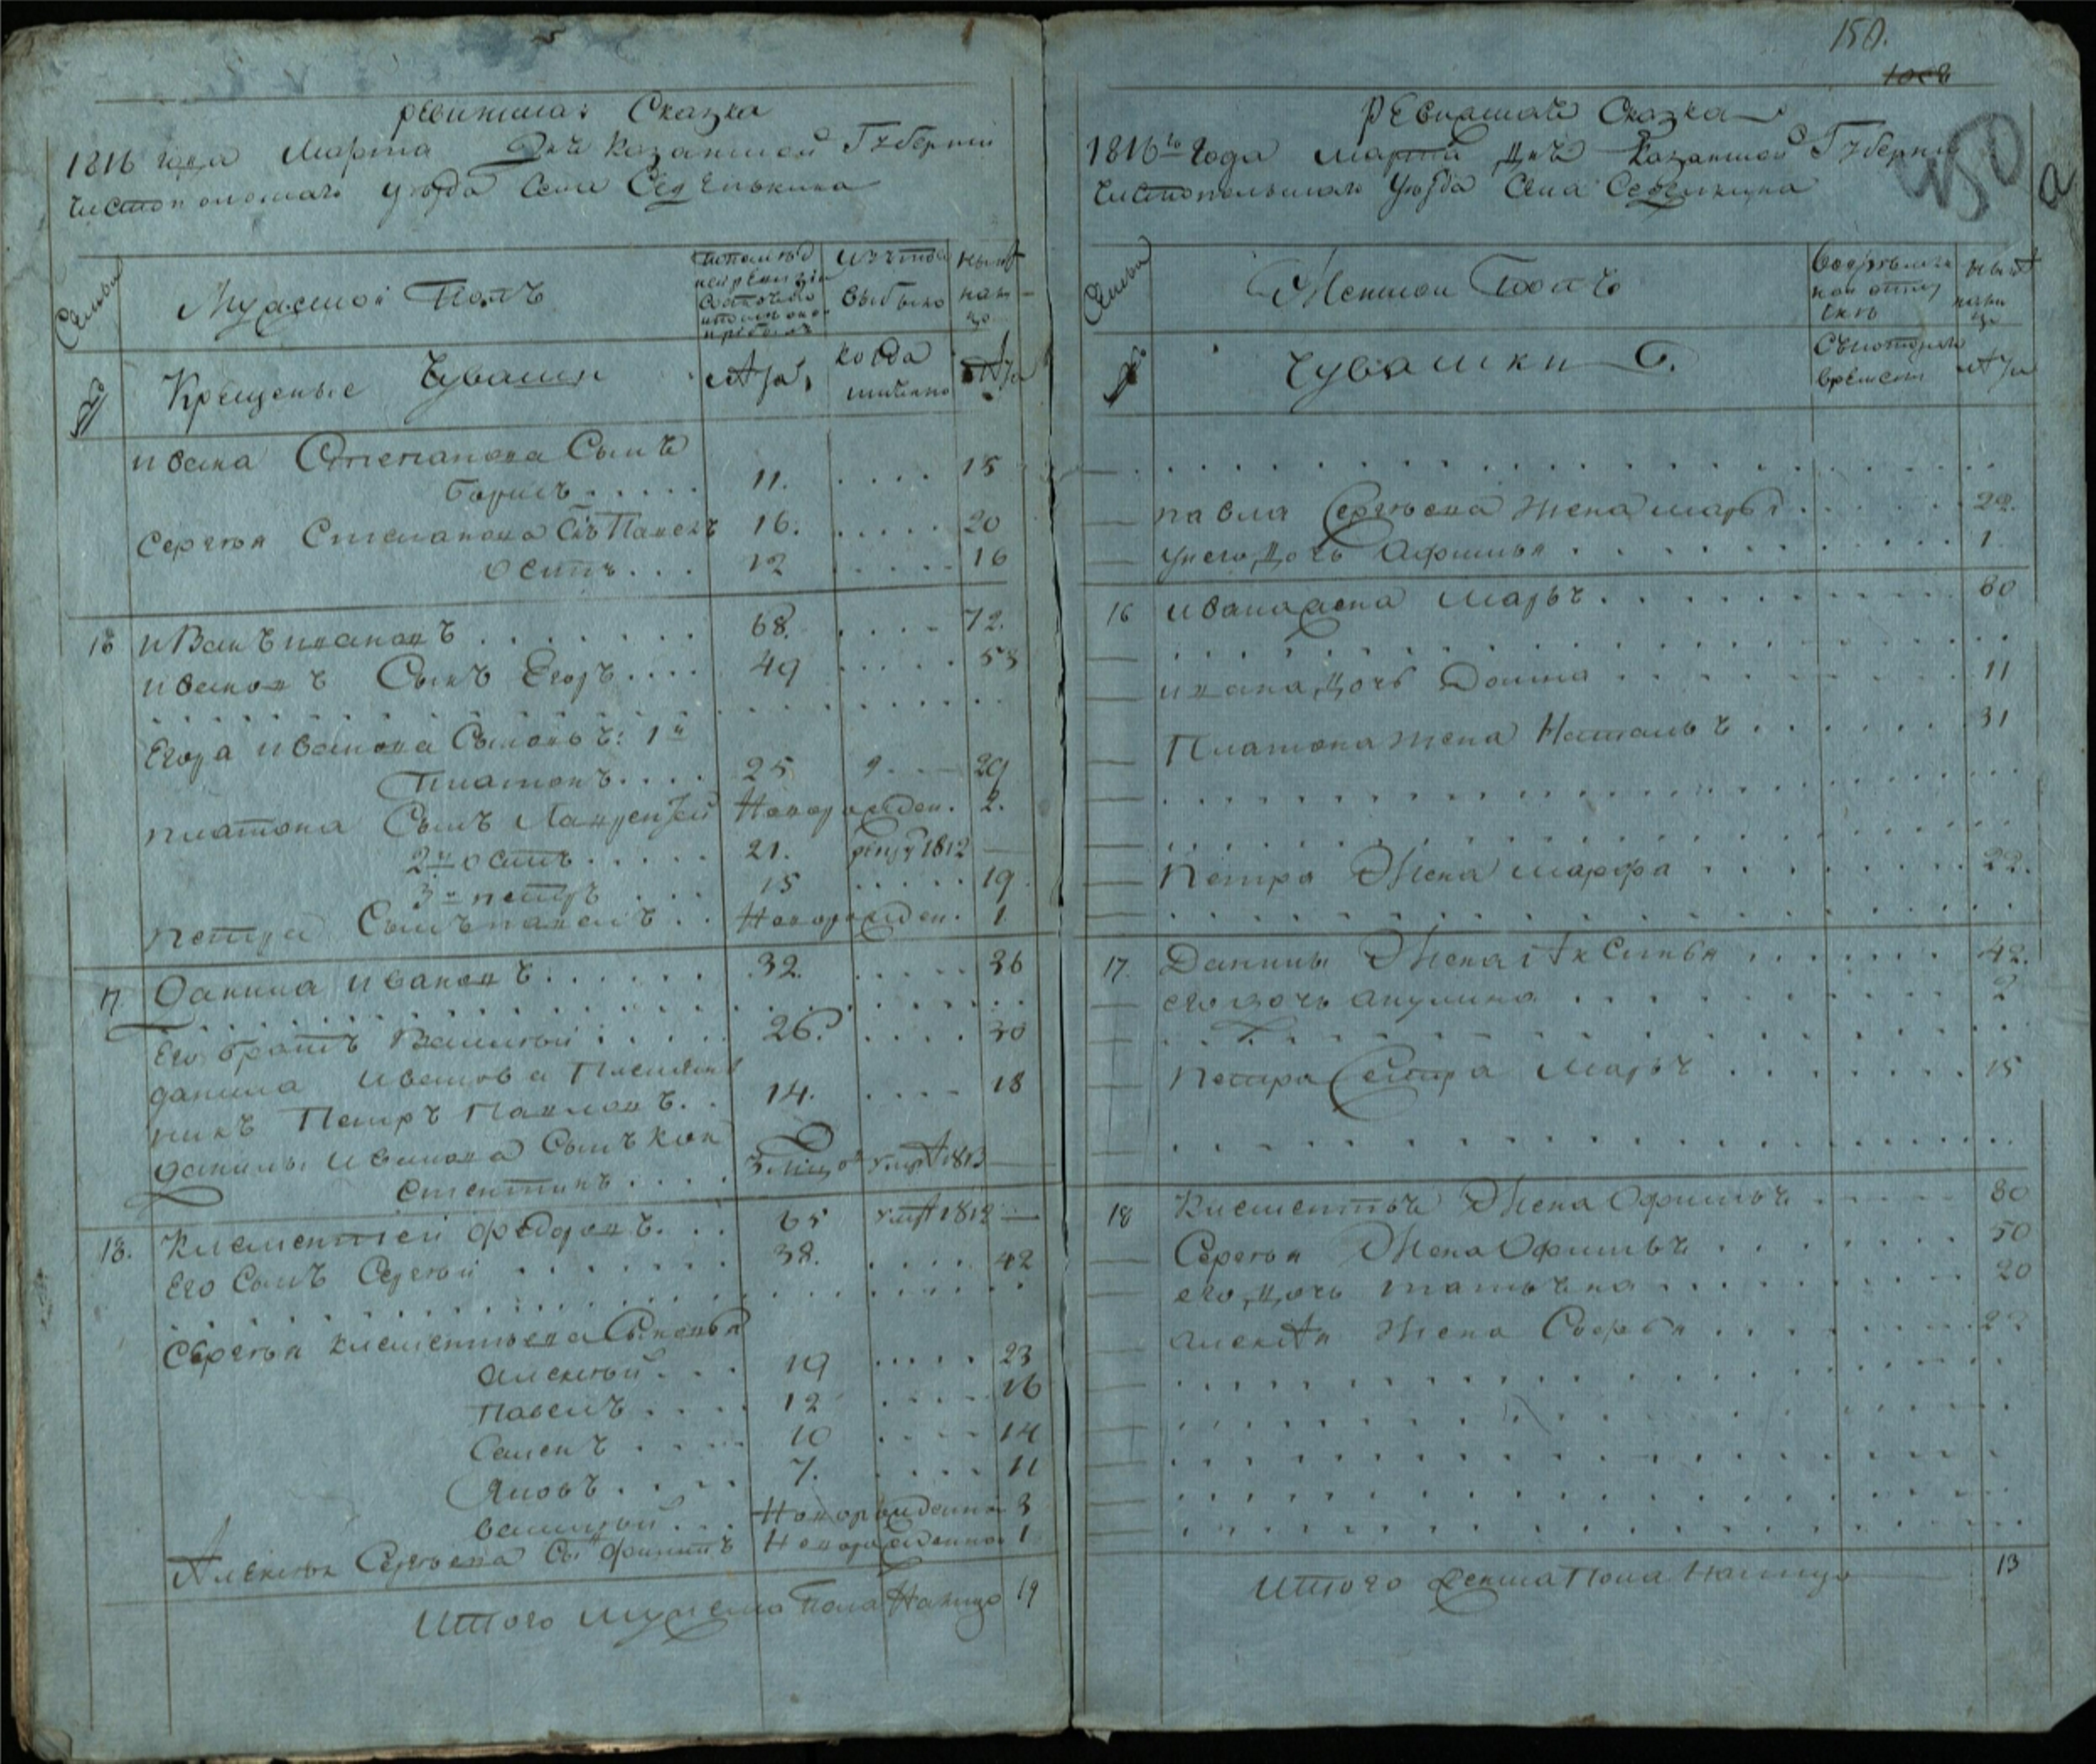 Ревижская Сказка
1816 года Марта Дня Казанской Губернии
Чистопольскаго уезда Села Седелькина
Семьи
Мужеской Полъ
По последней ревизии состояло и после оной прибыло
Изъ того выбыло
Ныне на лицо
№
Крещеные Чуваши
Лета
когда имянно
Лета
Ивана Степанова Сынъ
Борисъ 11. 15
Сергея Степанова Сынъ Павелъ 16. 20
Осипъ 12 16
16 Иванъ Ивановъ 68. 72.
Ивановъ Сынъ Егоръ 49 53
Егора Иванова Сыновья: 1й
Платонъ 25 29
Платона Сынъ Лаврентей Новорожден. 2.
2й Осипъ 21. рекру 1812 —
3й петръ 15 19.
Петра Сынъ павелъ Новорожден. 1.
17 Данила Ивановъ 32. 36
Его братъ Василей 26. 30
Данила Иванова Племян
никъ Петръ Павловъ. 14. 18
Данилы Иванова Сынъ Кон
стентинъ 3 умре 1813 —
18. Клементей Федоровъ. 65 умре 1812 —
Его Сынъ Сергей 38. 42
Сергея Клементьева Сыновья
Алексей 19 23
Павелъ 12 16
Семенъ 10 14
Яковъ 7. 11
Василей Новорожденной 3
Алексея Сергеева Сынъ Филипъ Новорожденной 1
Итого мужеска Пола Налицо 19
150.
450
а
Ревижская Сказка
1816го Года Марта дня Казанской Губернии
Чистопольскаго Уезда Села Седелькина
Семьи
Женской Полъ
Во временной отлучке
Ныне на лицо
№
Чувашки
Съ котораго времени
Лета
павла Сергеева Жена марья 22.
у него дочь Афимья 1.
16 Ивана жена Марья 60
Ивана дочь Домна 11
Платона жена Наталья 31
Петра Жена марфа 22.
17. Данилы Жена Аксинья 42.
его дочь акулина 2
Петра Сестра Марья 15
18 Клементья Жена Офимья 80
Сергея Жена Офимья 50
его дочь татьяна 20
алексея Жена Софья 22
Итого женска Пола Налицо 13